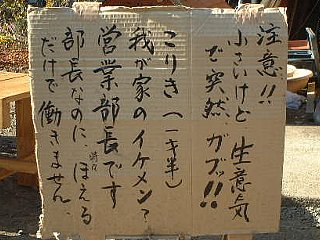 注意!!
小さいけど、生意気
で突然、ガブッ!!
こりき(一才半)
我が家のイケメン?
営業部長です
部長なのに、時々ほえる
だけで働きません。